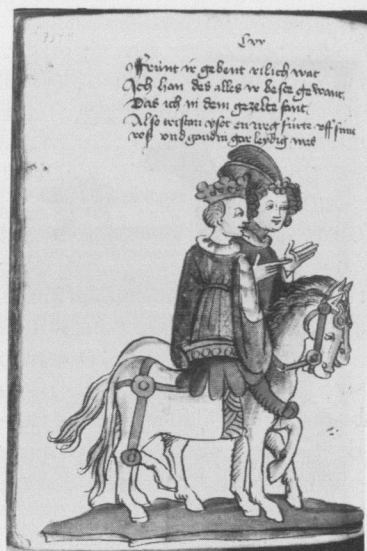 Cxv
Frünt ir gebent rilich wat
Ich han des alles ir beste gewant
Das ich in dem gezelte fant
Also tristan ysot en weg fürte vff sime
ros vnd gandin gar leydig was